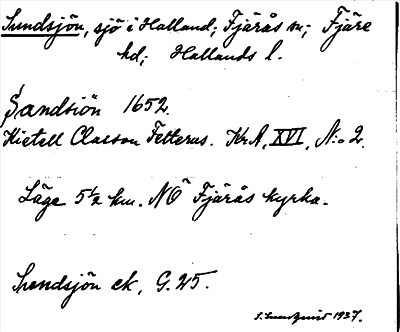 Sundsjön, sjö i Halland; Fjärås sn; Fjäre
hd; Hallands l.
Sandsiön 1652.
Kietell Classon Felterus. KrA, XVI, N:o 2.
Läge 5½ km. NÖ Fjärås kyrka.
Sundsjön ek, G. 25.
S. Lundqvist 1937.